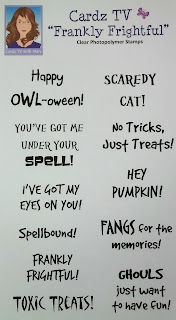 Cardz TV
"Frankly Frightful"
Clear Photopolymer Stamps
CARDZ TV with Mary
Happy
OWL-oween!
SCAREDY
CAT!
YOU'VE GOT ME
UNDER YOUR
SPELL!
No Tricks,
Just Treats!
I'VE GOT MY
EYES ON YOU!
HEY
PUMPKIN!
Spellbound!
FANGS for the
memories!
FRANKLY
FRIGHTFUL!
GHOULS
just want
to have fun!
TOXIC TREATS!